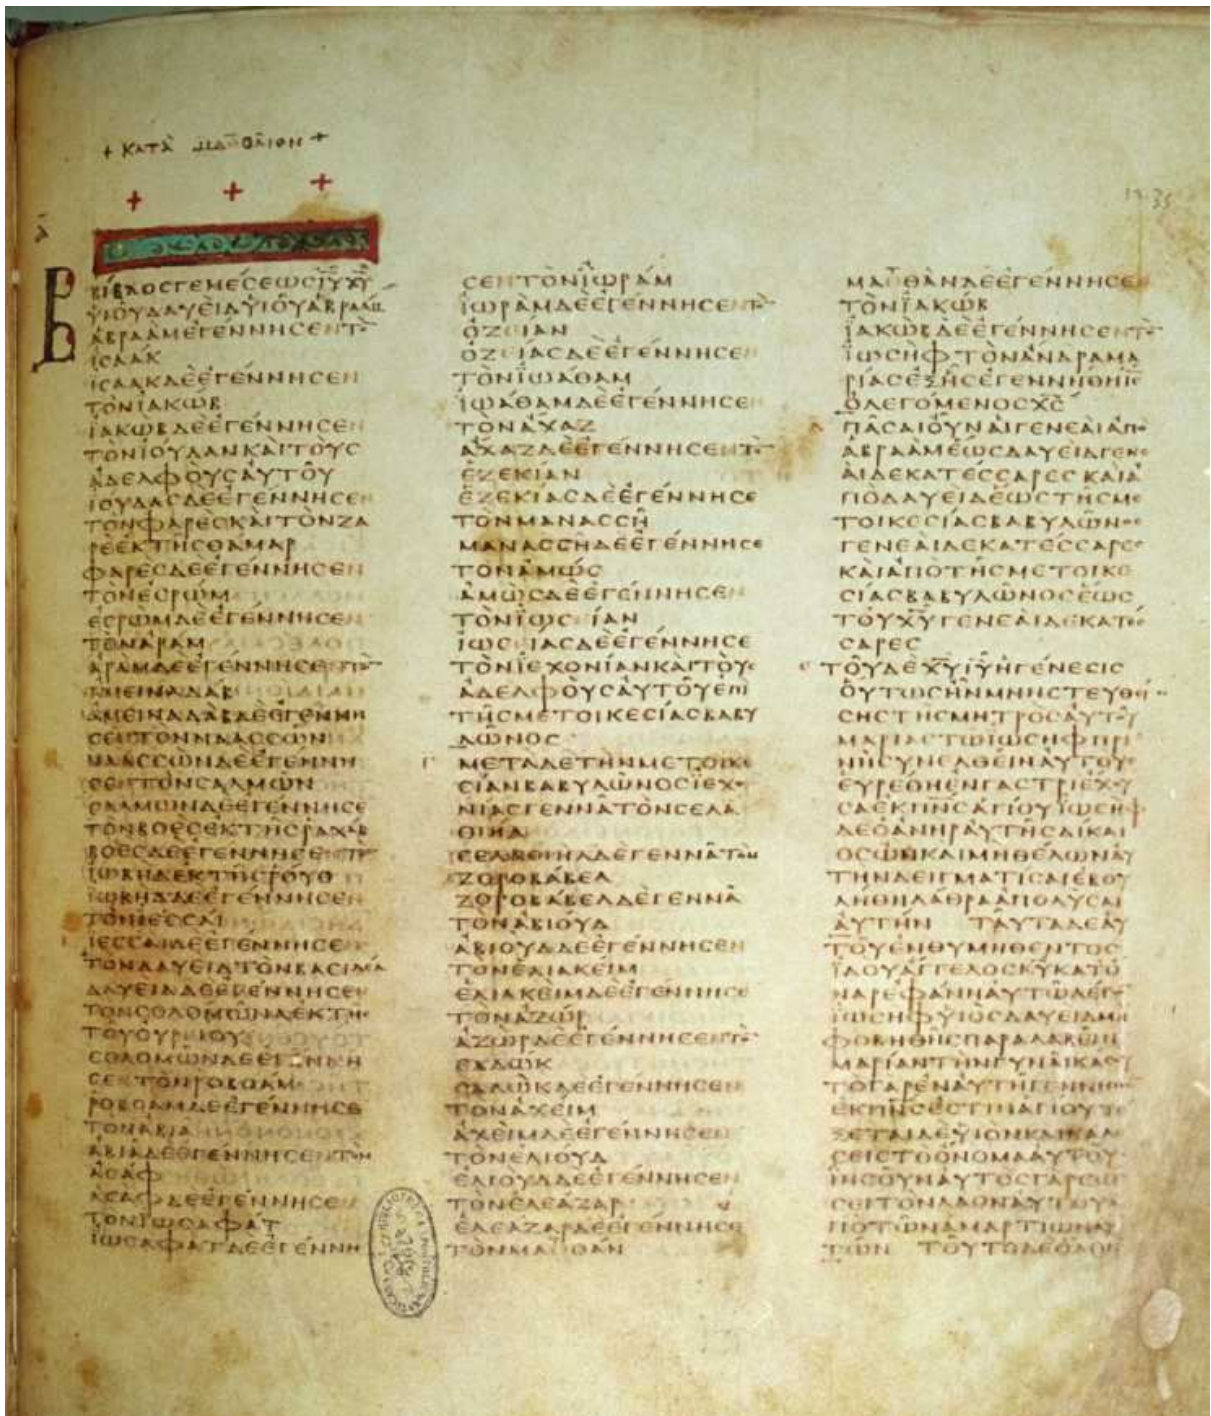 + ΚΑΤΑ ΜΑΘΘΑΙΟΝ +
Α
ΒΙΒΛΟΣΓΕΝΕΣΕΩΣΙΥΧΥ
ΥΙΟΥΔΑΥΕΙΔΥΙΟΥΑΒΡΑΑΜ
ΑΒΡΑΑΜΕΓΕΝΝΗΣΕΝΤΟΝ
ΙΣΑΑΚ
ΙΣΑΑΚΔΕΕΓΕΝΝΗΣΕΝ
ΤΟΝΙΑΚΩΒ
ΙΑΚΩΒΔΕΕΓΕΝΝΗΣΕΝ
ΤΟΝΙΟΥΔΑΝΚΑΙΤΟΥΣ
ΑΔΕΛΦΟΥΣΑΥΤΟΥ
ΙΟΥΔΑΣΔΕΕΓΕΝΝΗΣΕΝ
ΤΟΝΦΑΡΕΣΚΑΙΤΟΝΖΑ
ΡΕΕΚΤΗΣΘΑΜΑΡ
ΦΑΡΕΣΔΕΕΓΕΝΝΗΣΕΝ
ΤΟΝΕΣΡΩΜ
ΕΣΡΩΜΔΕΕΓΕΝΝΗΣΕΝ
ΤΟΝΑΡΑΜ
ΑΡΑΜΔΕΕΓΕΝΝΗΣΕΝΤΟΝ
ΑΜΕΙΝΑΔΑΒ
ΑΜΕΙΝΑΔΑΒΔΕΕΓΕΝΝΗ
ΣΕΝΤΟΝΝΑΑΣΣΩΝ
ΝΑΑΣΣΩΝΔΕΕΓΕΝΝΗ
ΣΕΝΤΟΝΣΑΛΜΩΝ
ΣΑΛΜΩΝΔΕΕΓΕΝΝΗΣΕ
ΤΟΝΒΟΕΣΕΚΤΗΣΡΑΧΑΒ
ΒΟΕΣΔΕΕΓΕΝΝΗΣΕΝΤΟΝ
ΙΩΒΗΔΕΚΤΗΣΡΟΥΘ
ΙΩΒΗΔΔΕΕΓΕΝΝΗΣΕΝ
ΤΟΝΙΕΣΣΑΙ
ΙΕΣΣΑΙΔΕΕΓΕΝΝΗΣΕ
ΤΟΝΔΑΥΕΙΔΤΟΝΒΑΣΙΛΕΑ
ΔΑΥΕΙΔΔΕΕΓΕΝΝΗΣΕΝ
ΤΟΝΣΟΛΟΜΩΝΑΕΚΤΗΣ
ΤΟΥΟΥΡΕΙΟΥ
ΣΟΛΟΜΩΝΔΕΕΓΕΝΝΗ
ΣΕΝΤΟΝΡΟΒΟΑΜ
ΡΟΒΟΑΜΔΕΕΓΕΝΝΗΣΕ
ΤΟΝΑΒΙΑ
ΑΒΙΑΔΕΕΓΕΝΝΗΣΕΝΤΟΝ
ΑΣΑΦ
ΑΣΑΦΔΕΕΓΕΝΝΗΣΕΝ
ΤΟΝΙΩΣΑΦΑΤ
ΙΩΣΑΦΑΤΔΕΕΓΕΝΝΗ
ΣΕΝΤΟΝΙΩΡΑΜ
ΙΩΡΑΜΔΕΕΓΕΝΝΗΣΕΝΤΟΝ
ΟΖΕΙΑΝ
ΟΖΕΙΑΣΔΕΕΓΕΝΝΗΣΕΝ
ΤΟΝΙΩΑΘΑΜ
ΙΩΑΘΑΜΔΕΕΓΕΝΝΗΣΕΝ
ΤΟΝΑΧΑΖ
ΑΧΑΖΔΕΕΓΕΝΝΗΣΕΝΤΟΝ
ΕΖΕΚΙΑΝ
ΕΖΕΚΙΑΣΔΕΕΓΕΝΝΗΣΕ
ΤΟΝΜΑΝΑΣΣΗ
ΜΑΝΑΣΣΗΔΕΕΓΕΝΝΗΣΕ
ΤΟΝΑΜΩΣ
ΑΜΩΣΔΕΕΓΕΝΝΗΣΕΝ
ΤΟΝΙΩΣΕΙΑΝ
ΙΩΣΕΙΑΣΔΕΕΓΕΝΝΗΣΕ
ΤΟΝΙΕΧΟΝΙΑΝΚΑΙΤΟΥΣ
ΑΔΕΛΦΟΥΣΑΥΤΟΥΕΠΙ
ΤΗΣΜΕΤΟΙΚΕΣΙΑΣΒΑΒΥ
ΛΩΝΟΣ
Γ ΜΕΤΑΔΕΤΗΝΜΕΤΟΙΚΕ
ΣΙΑΝΒΑΒΥΛΩΝΟΣΙΕΧΟ
ΝΙΑΣΓΕΝΝΑΤΟΝΣΕΛΑ
ΘΙΗΛ
ΣΕΛΑΘΙΗΛΔΕΓΕΝΝΑΤΟΝ
ΖΟΡΟΒΑΒΕΛ
ΖΟΡΟΒΑΒΕΛΔΕΓΕΝΝΑ
ΤΟΝΑΒΙΟΥΔ
ΑΒΙΟΥΔΔΕΕΓΕΝΝΗΣΕΝ
ΤΟΝΕΛΙΑΚΕΙΜ
ΕΛΙΑΚΕΙΜΔΕΕΓΕΝΝΗΣΕ
ΤΟΝΑΖΩΡ
ΑΖΩΡΔΕΕΓΕΝΝΗΣΕΝΤΟΝ
ΣΑΔΩΚ
ΣΑΔΩΚΔΕΕΓΕΝΝΗΣΕΝ
ΤΟΝΑΧΕΙΜ
ΑΧΕΙΜΔΕΕΓΕΝΝΗΣΕΝ
ΤΟΝΕΛΙΟΥΔ
ΕΛΙΟΥΔΔΕΕΓΕΝΝΗΣΕΝ
ΤΟΝΕΛΕΑΖΑΡ
ΕΛΕΑΖΑΡΔΕΕΓΕΝΝΗΣΕ
ΤΟΝΜΑΘΘΑΝ
ΜΑΘΘΑΝΔΕΕΓΕΝΝΗΣΕΝ
ΤΟΝΙΑΚΩΒ
ΙΑΚΩΒΔΕΕΓΕΝΝΗΣΕΝΤΟΝ
ΙΩΣΗΦΤΟΝΑΝΔΡΑΜΑ
ΡΙΑΣΕΞΗΣΕΓΕΝΝΗΘΗΙΣ
ΟΛΕΓΟΜΕΝΟΣΧΣ
Δ ΠΑΣΑΙΟΥΝΑΙΓΕΝΕΑΙΑΠΟ
ΑΒΡΑΑΜΕΩΣΔΑΥΕΙΔΓΕΝΕ
ΑΙΔΕΚΑΤΕΣΣΑΡΕΣΚΑΙΑ
ΠΟΔΑΥΕΙΔΕΩΣΤΗΣΜΕ
ΤΟΙΚΕΣΙΑΣΒΑΒΥΛΩΝΟΣ
ΓΕΝΕΑΙΔΕΚΑΤΕΣΣΑΡΕΣ
ΚΑΙΑΠΟΤΗΣΜΕΤΟΙΚΕ
ΣΙΑΣΒΑΒΥΛΩΝΟΣΕΩΣ
ΤΟΥΧΥΓΕΝΕΑΙΔΕΚΑΤΕΣ
ΣΑΡΕΣ
Ε ΤΟΥΔΕΧΥΙΥΗΓΕΝΕΣΙΣ
ΟΥΤΩΣΗΝΜΝΗΣΤΕΥΘΕΙ
ΣΗΣΤΗΣΜΗΤΡΟΣΑΥΤΟΥ
ΜΑΡΙΑΣΤΩΙΩΣΗΦΠΡΙ
ΝΗΣΥΝΕΛΘΕΙΝΑΥΤΟΥΣ
ΕΥΡΕΘΗΕΝΓΑΣΤΡΙΕΧΟΥ
ΣΑΕΚΠΝΣΑΓΙΟΥΙΩΣΗΦ
ΔΕΟΑΝΗΡΑΥΤΗΣΔΙΚΑΙ
ΟΣΩΝΚΑΙΜΗΘΕΛΩΝΑΥ
ΤΗΝΔΕΙΓΜΑΤΙΣΑΙΕΒΟΥ
ΛΗΘΗΛΑΘΡΑΑΠΟΛΥΣΑΙ
ΑΥΤΗΝ ΤΑΥΤΑΔΕΑΥ
ΤΟΥΕΝΘΥΜΗΘΕΝΤΟΣ
ΙΔΟΥΑΓΓΕΛΟΣΚΥΚΑΤΟ
ΝΑΡΕΦΑΝΗΑΥΤΩΛΕΓΩ
ΙΩΣΗΦΥΙΟΣΔΑΥΕΙΔΜΗ
ΦΟΒΗΘΗΣΠΑΡΑΛΑΒΕΙΝ
ΜΑΡΙΑΝΤΗΝΓΥΝΑΙΚΑΣΟΥ
ΤΟΓΑΡΕΝΑΥΤΗΓΕΝΝΗΘΕ
ΕΚΠΝΣΕΣΤΙΝΑΓΙΟΥΤΕ
ΞΕΤΑΙΔΕΥΙΟΝΚΑΙΚΑΛΕ
ΣΕΙΣΤΟΟΝΟΜΑΑΥΤΟΥ
ΙΗΣΟΥΝΑΥΤΟΣΓΑΡΣΩ
ΣΕΙΤΟΝΛΑΟΝΑΥΤΟΥΑ
ΠΟΤΩΝΑΜΑΡΤΙΩΝΑΥ
ΤΩΝ ΤΟΥΤΟΔΕΟΛΟΝ